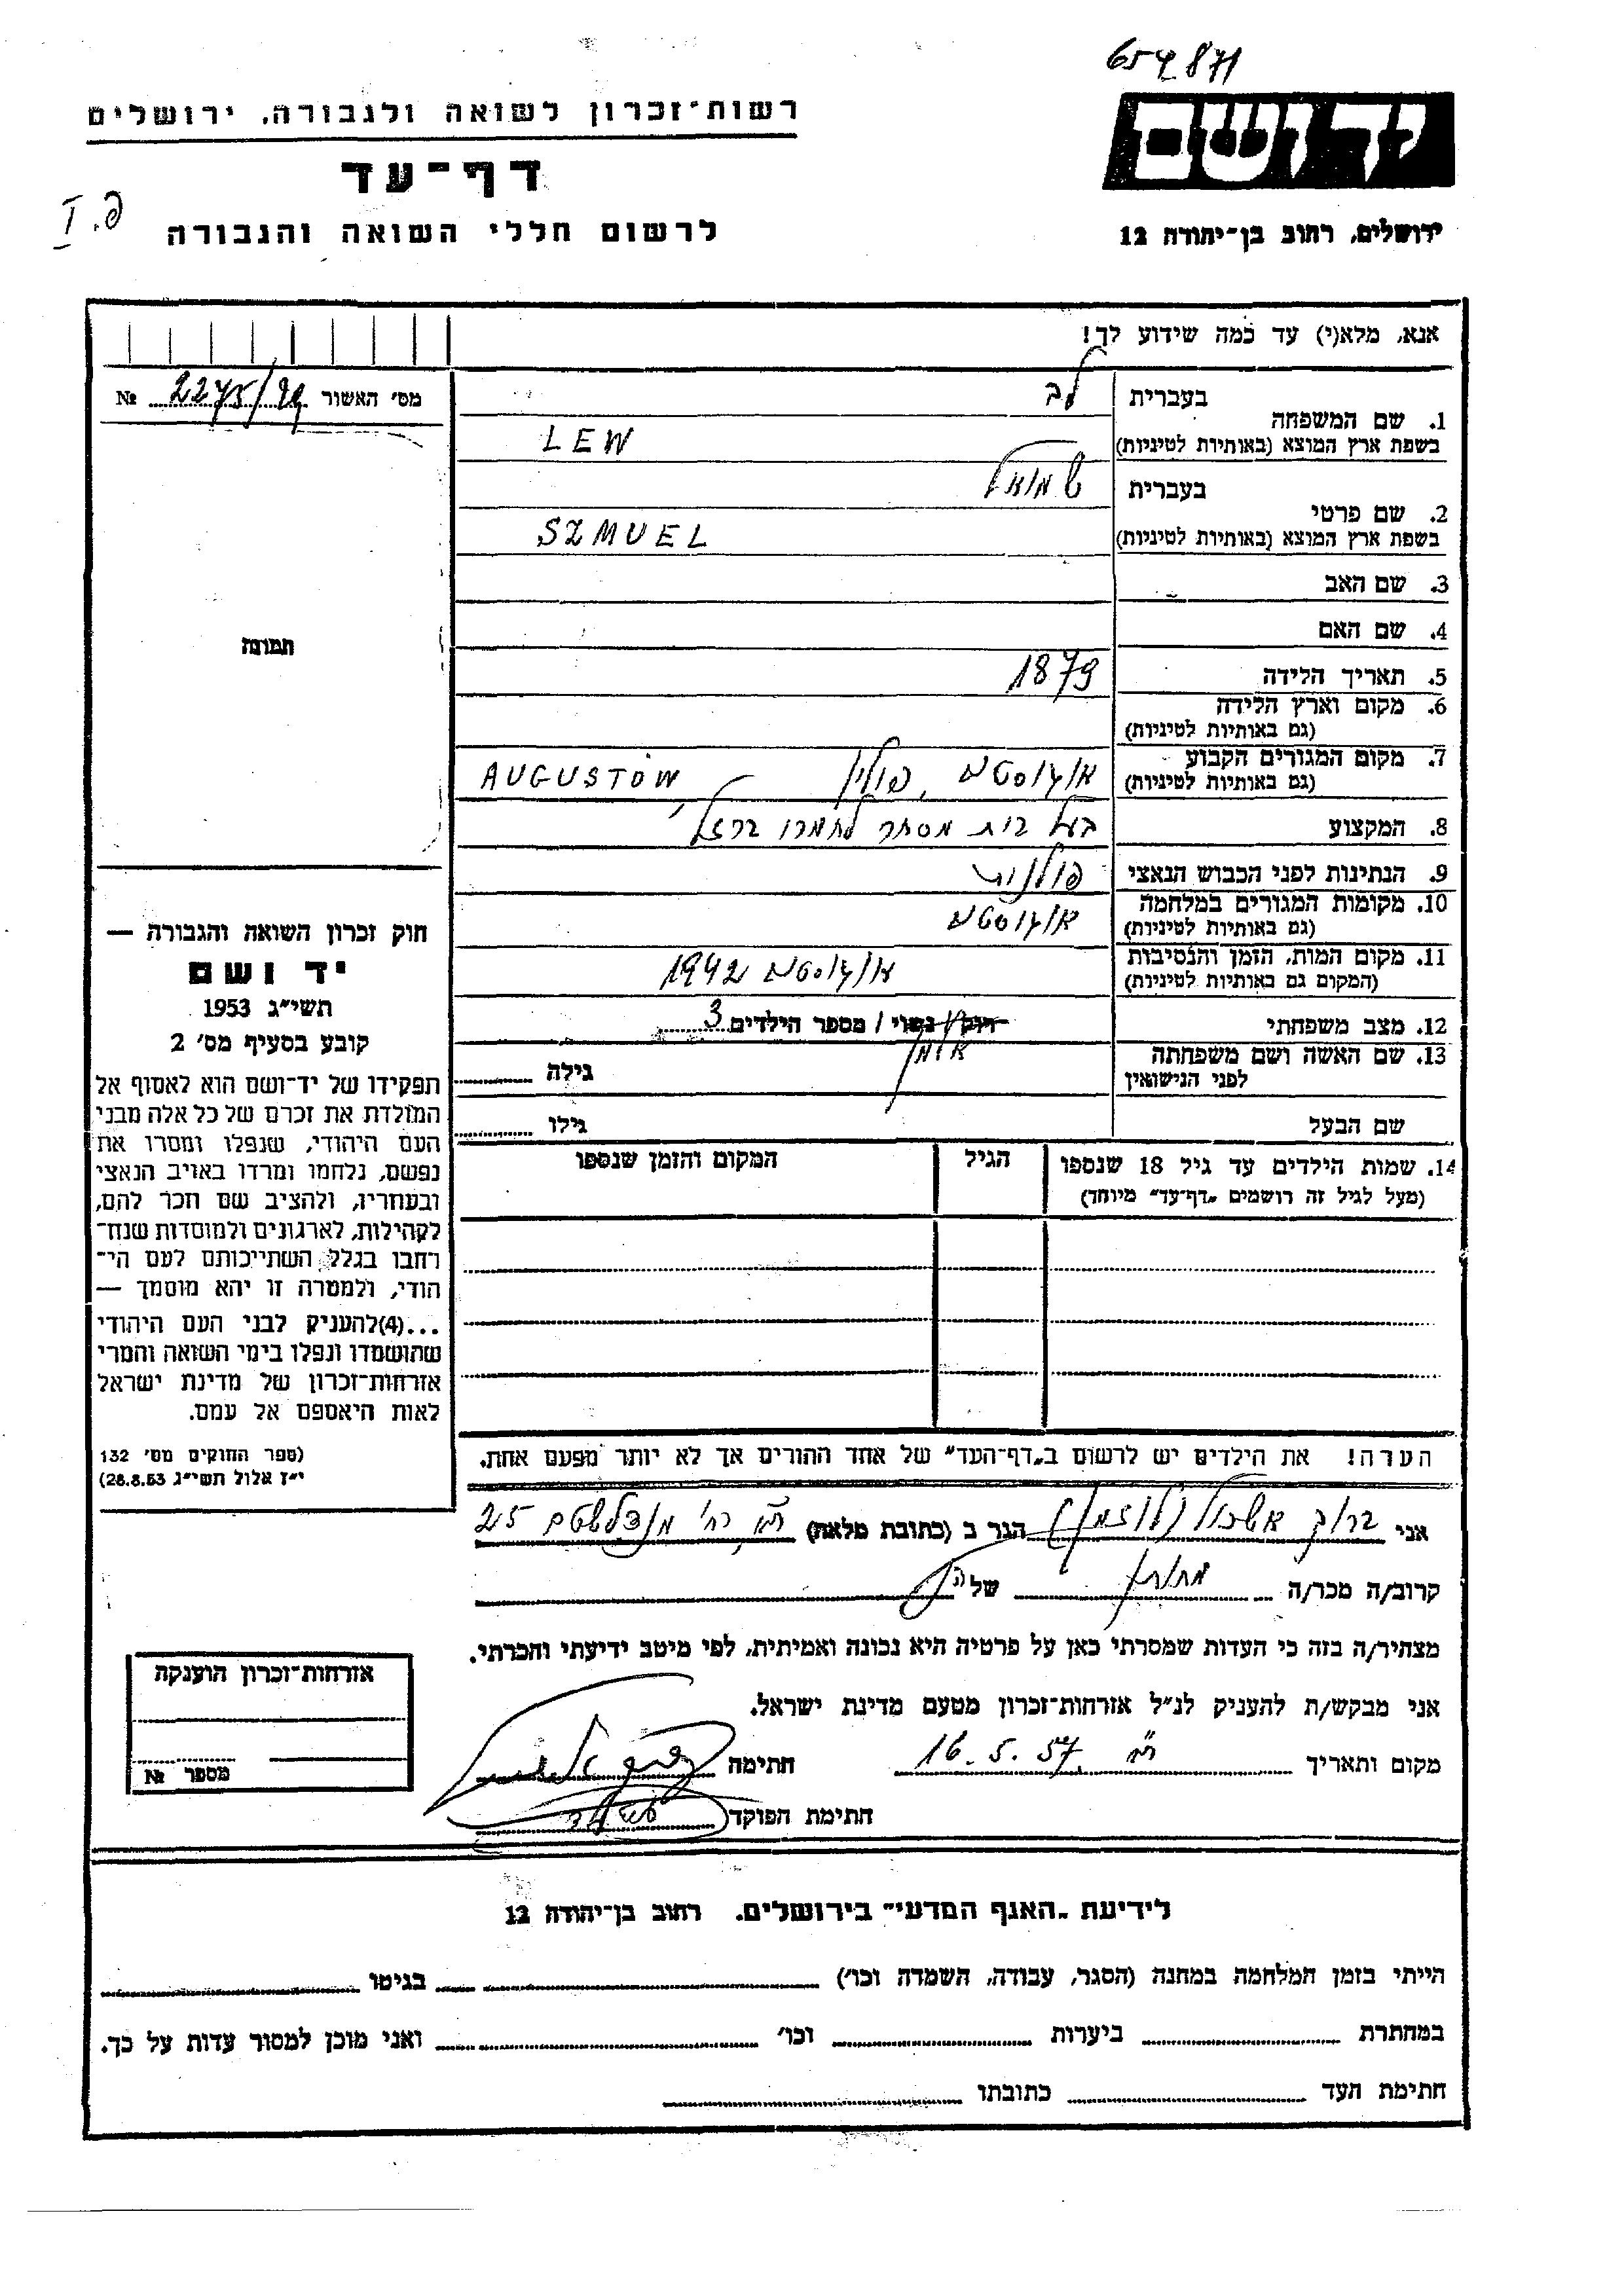 654871
רשות־זכרון לשואה ולגבורה, ירושלים
יד ושם
דף־עד
פ. I
לרשום חללי השואה והגבורה
ירושלים, רחוב בן־יהודה 12
אנא, מלא(י) עד כמה שידוע לך!
מס׳ האשור
№ 2275/99
1. שם המשפחה
בעברית לב
בשפת ארץ המוצא (באותיות לטיניות) LEW
2. שם פרטי
בעברית שמואל
בשפת ארץ המוצא (באותיות לטיניות) SZMUEL
3. שם האב
4. שם האם
תמונה
5. תאריך הלידה 1879
6. מקום וארץ הלידה
(גם באותיות לטיניות)
7. מקום המגורים הקבוע
(גם באותיות לטיניות) אוגוסטוב, פולין AUGUSTÓW
8. המקצוע בעל בית מסחר לחמרי ברזל
9. הנתינות לפני הכבוש הנאצי פולנית
10. מקומות המגורים במלחמה
(גם באותיות לטיניות) אוגוסטוב
11. מקום המות, הזמן והנסיבות
(המקום גם באותיות לטיניות) אוגוסטוב 1942
12. מצב משפחתי רוק/ נשוי / מספר הילדים 3
אלמן
13. שם האשה ושם משפחתה
לפני הנישואין
גילה
שם הבעל
גילו
14. שמות הילדים עד גיל 18 שנספו
(מעל לגיל זה רושמים „דף־עד״ מיוחד)
הגיל
המקום והזמן שנספו
חוק זכרון השואה והגבורה —
יד ושם
תשי״ג 1953
קובע בסעיף מס׳ 2
תפקידו של יד־ושם הוא לאסוף אל
המולדת את זכרם של כל אלה מבני
העם היהודי, שנפלו ומסרו את
נפשם, נלחמו ומרדו באויב הנאצי
ובעוזריו, ולהציב שם וזכר להם,
לקהילות, לארגונים ולמוסדות שנח־
רבו בגלל השתייכותם לעם הי־
הודי, ולמטרה זו יהא מוסמך —
...(4)להעניק לבני העם היהודי
שהושמדו ונפלו בימי השואה והמרי
אזרחות־זכרון של מדינת ישראל
לאות היאספם אל עמם.
(ספר החוקים מס׳ 132
י״ז אלול תשי״ג 28.8.53)
הערה! את הילדים יש לרשום ב„דף־העד״ של אחד ההורים אך לא יותר מפעם אחת.
אני ברוך אשכול הגר ב (כתובת מלאה) ת״א, רח׳ מנדלשטם 25
קרוב/ה מכר/ה מחותן של הנ״ל
מצהיר/ה בזה כי העדות שמסרתי כאן על פרטיה היא נכונה ואמיתית, לפי מיטב ידיעתי והכרתי.
אני מבקש/ת להעניק לנ״ל אזרחות־זכרון מטעם מדינת ישראל.
מקום ותאריך ת״א 16.5.57 חתימה
חתימת הפוקד
אזרחות־זכרון הוענקה
מספר №
לידיעת „האגף המדעי״ בירושלים. רחוב בן־יהודה 12
הייתי בזמן המלחמה במחנה (הסגר, עבודה, השמדה וכו׳) בגיטו
במחתרת ביערות וכו׳ ואני מוכן למסור עדות על כך.
חתימת העד כתובתו